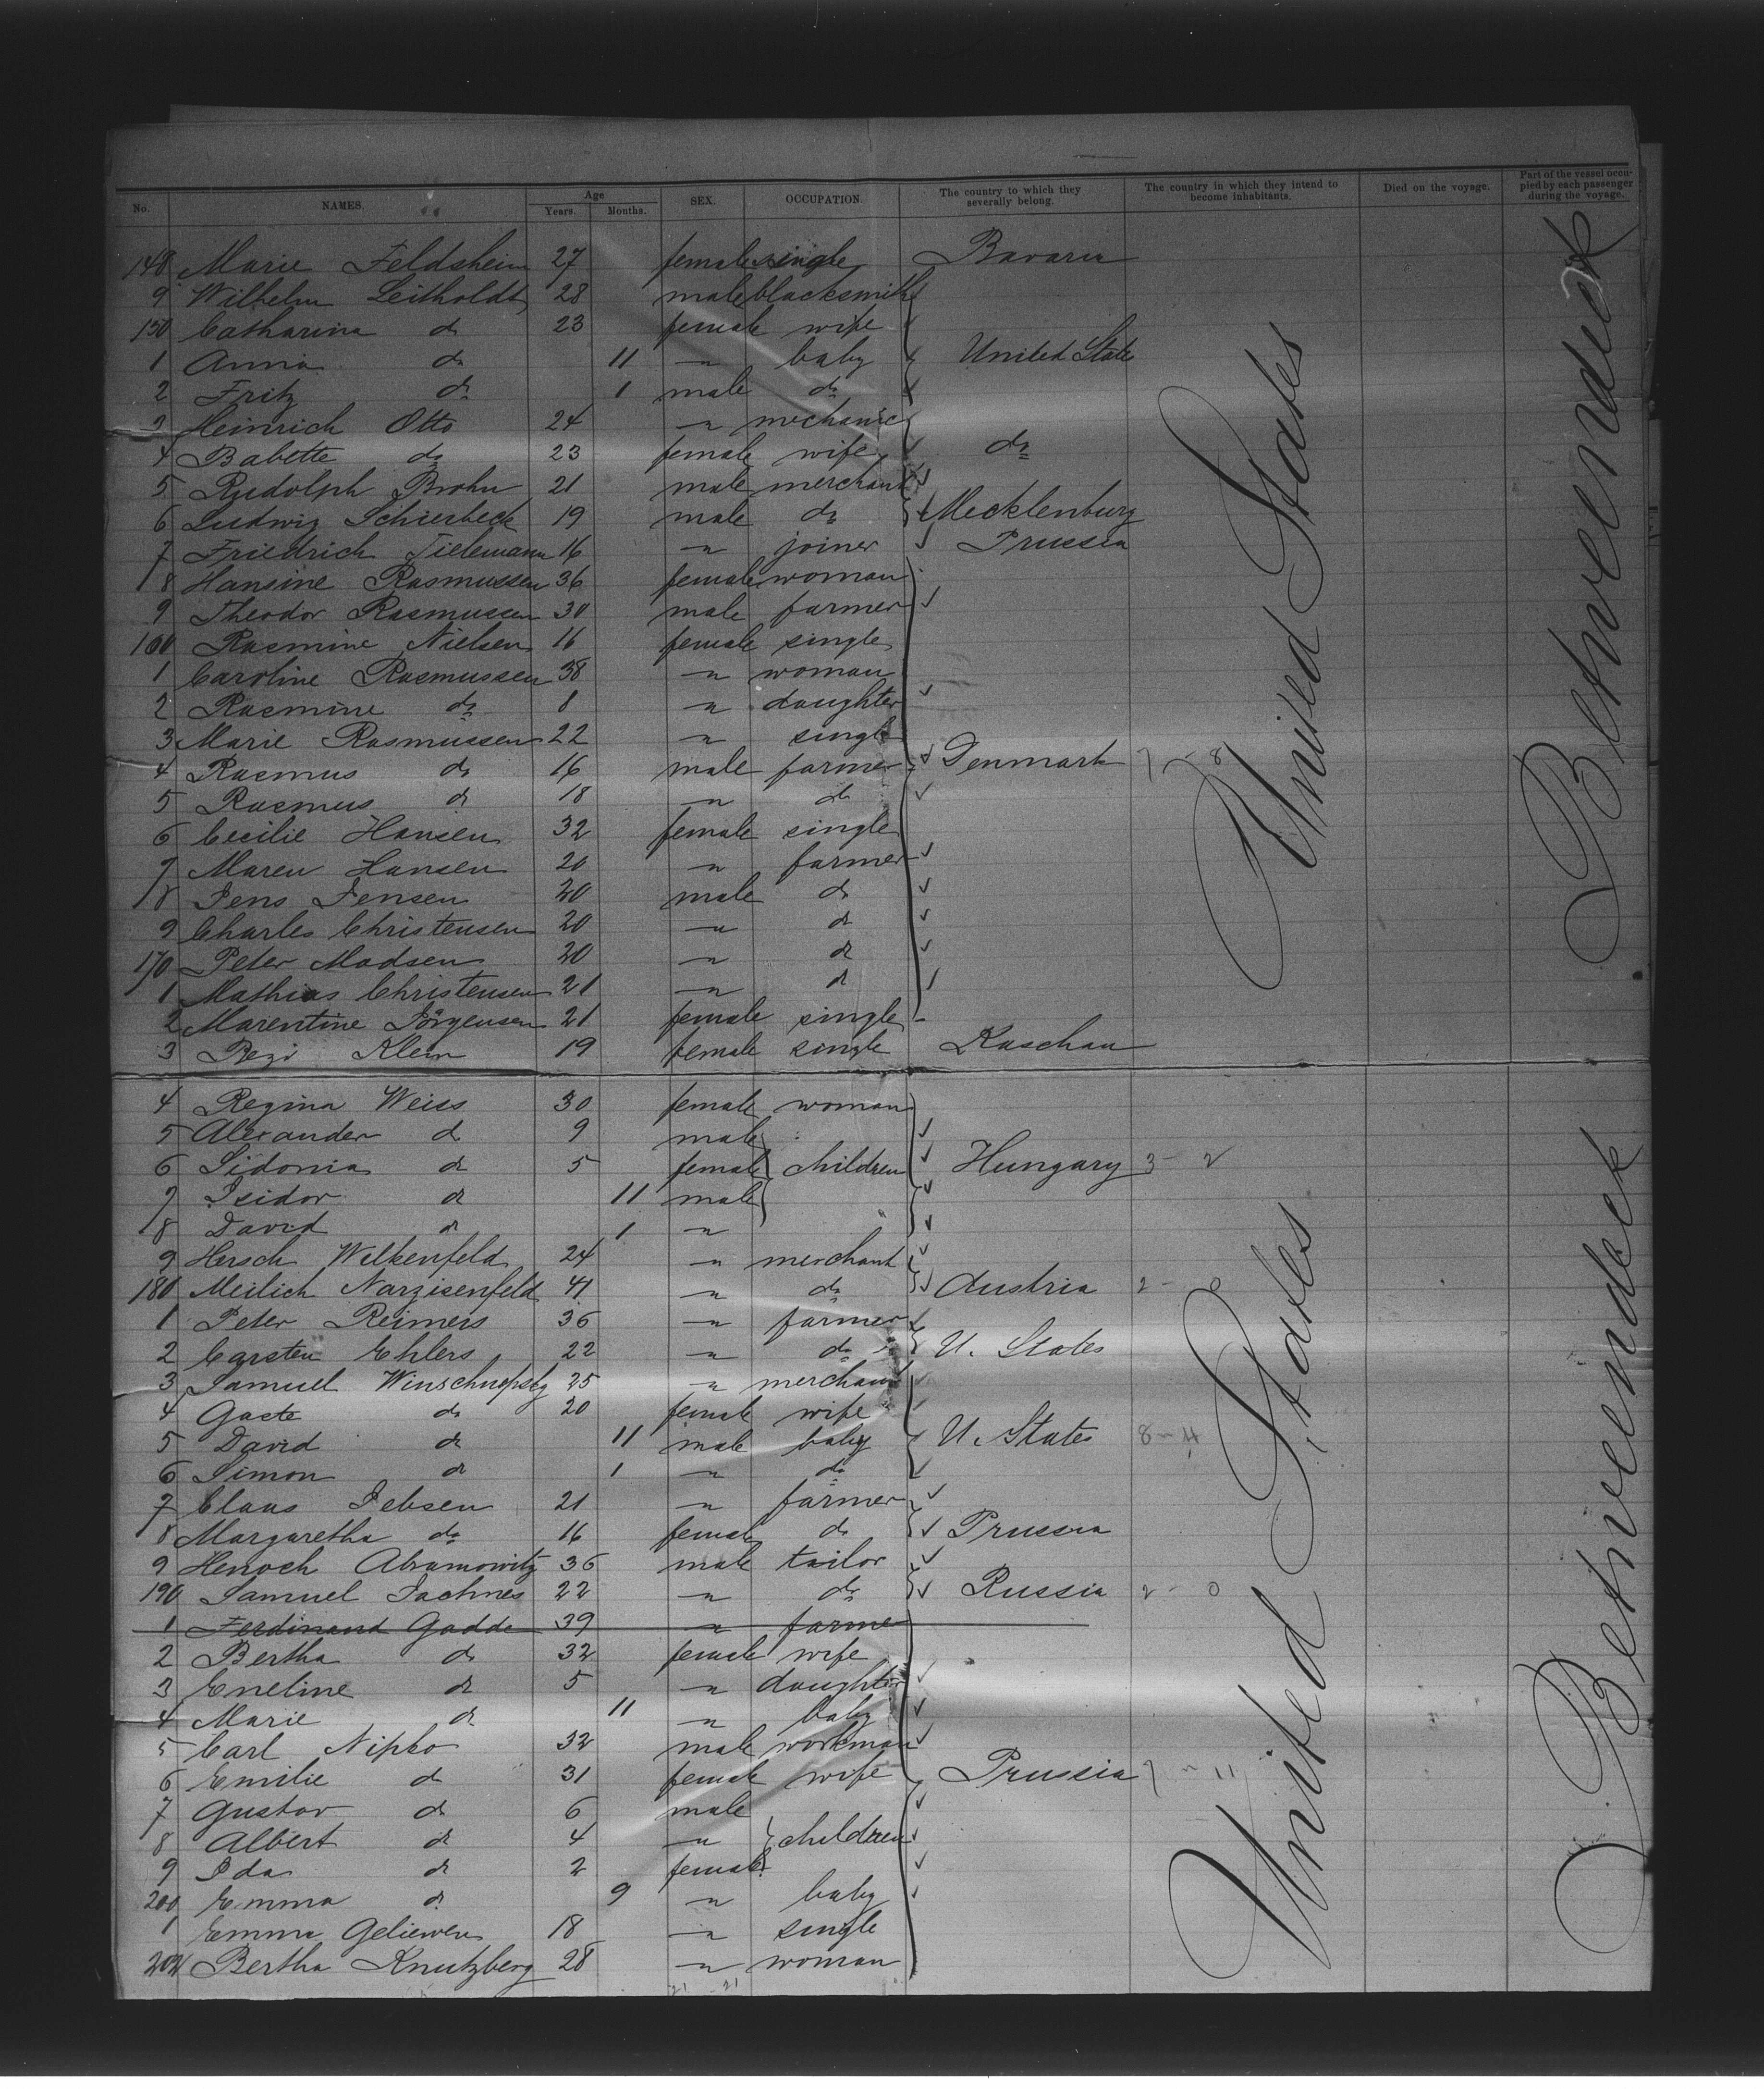 No. NAMES. Age Years. Months. SEX. OCCUPATION. The country to which they severally belong. The country in which they intend to become inhabitants. Died on the voyage. Part of the vessel occupied by each passenger during the voyage.
148 Marie Feldsheim 27 female single Bavaria
9 Wilhelm Leitholdt 28 male blacksmith
150 Catharina do 23 female wife
1 Anna do 11 " baby United State
2 Fritz do 1 male do
3 Heinrich Otto 24 " mechanic
4 Babette do 23 female wife do
5 Rudolph Brohn 21 male merchant
6 Ludwig Schierbeck 19 male do Mecklenburg
7 Friedrich Tielemann 16 " joiner Prussia
8 Hansine Rasmussen 36 female woman
9 Theodor Rasmussen 30 male farmer
160 Rasmine Nielsen 16 female single
1 Caroline Rasmussen 38 " woman
2 Rasmine do 8 " daughter
3 Marie Rasmussen 22 " single
4 Rasmus do 16 male farmer Denmark 7 - 8
5 Rasmus do 18 " do
6 Cecilie Hansen 32 female single
7 Maren Hansen 20 " farmer
8 Jens Jensen 20 male do
9 Charles Christensen 20 " do
170 Peter Madsen 20 " do
1 Mathias Christensen 21 " do
2 Marentine Jörgensen 21 female single
3 Rezi Klein 19 female single Kaschau
4 Regina Weiss 30 female woman
5 Alexander do 9 male
6 Sidonia do 5 female children Hungary 3 - 2
7 Isidor do 11 male
8 David do 1 "
9 Hersch Welkenfeld 24 " merchant
180 Meilich Narzisenfeld 41 " do Austria 2 - 0
1 Peter Reimers 36 " farmer
2 Carsten Ehlers 22 " do U. States
3 Samuel 25 " merchant
4 Gaste do 20 female wife
5 David do 11 male baby U. States 8 - 4
6 Simon do 1 " do
7 Claus Jebsen 21 " farmer
8 Margaretha do 16 female do Prussia
9 Henoch Abramowitz 36 male tailor
190 Samuel Sachnes 22 " do Russia 2 - 0
1 Ferdinand Gadde 39 " farmer
2 Bertha do 32 female wife
3 Eneline do 5 " daughter
4 Marie do 11 " baby
5 Carl Nipko 32 male workman
6 Emilie do 31 female wife Prussia 7 - 11
7 Gustav do 6 male
8 Albert do 4 " children
9 Ida do 2 female
200 Emma do 9 " baby
1 Emma Geliewen 18 " single
202 Bertha Knutzberg 28 " woman
21 21
United States
United States
Betweendeck
Betweendeck